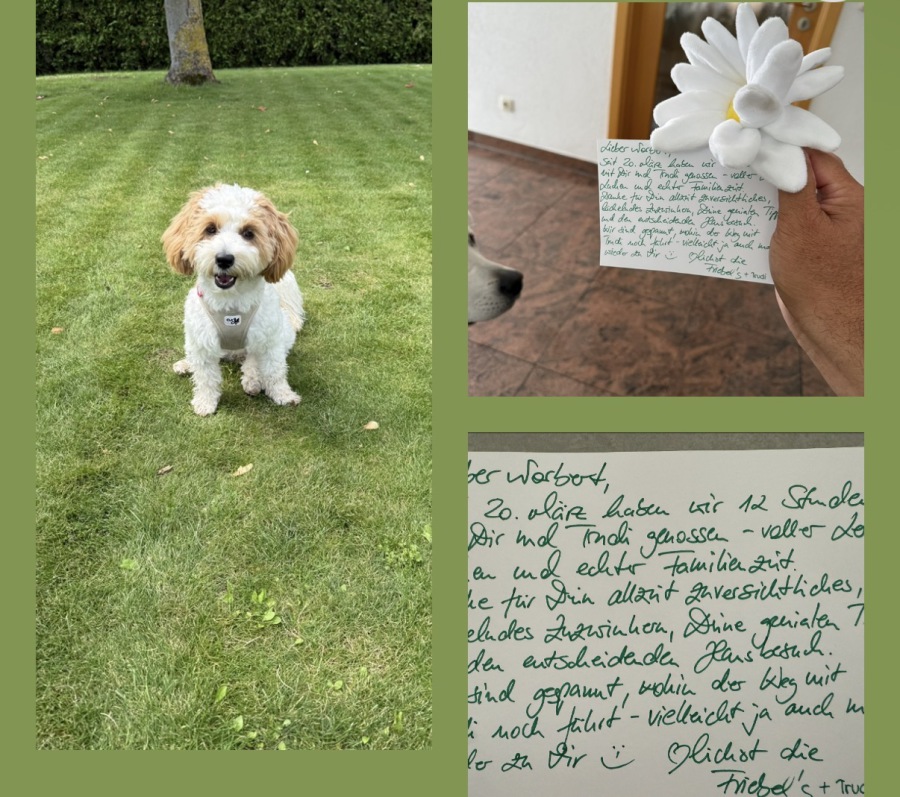 Lieber Norbert,
Seit 20. März haben wir
mit Dir und Trudi genossen - voller
Lachen und echter Familienzeit.
Danke für Dein allzeit zuversichtliches,
lächelndes Zuzwinkern, Deine genialen
und den entscheidenden Hausbesuch.
Wir sind gespannt, wohin der Weg mit
Trudi noch führt - vielleicht ja auch
wieder zu Dir :)
♡lichst die
Friebel's + Trudi
ber Norbert,
20. März haben wir 12 Stunden
Dir und Trudi genossen - voller
en und echter Familienzeit.
ke für Dein allzeit zuversichtliches,
elndes Zuzwinkern, Deine genialen
den entscheidenden Hausbesuch.
sind gespannt, wohin der Weg mit
i noch führt - vielleicht ja auch
der zu Dir :) ♡lichst die
Friebel's + Trud